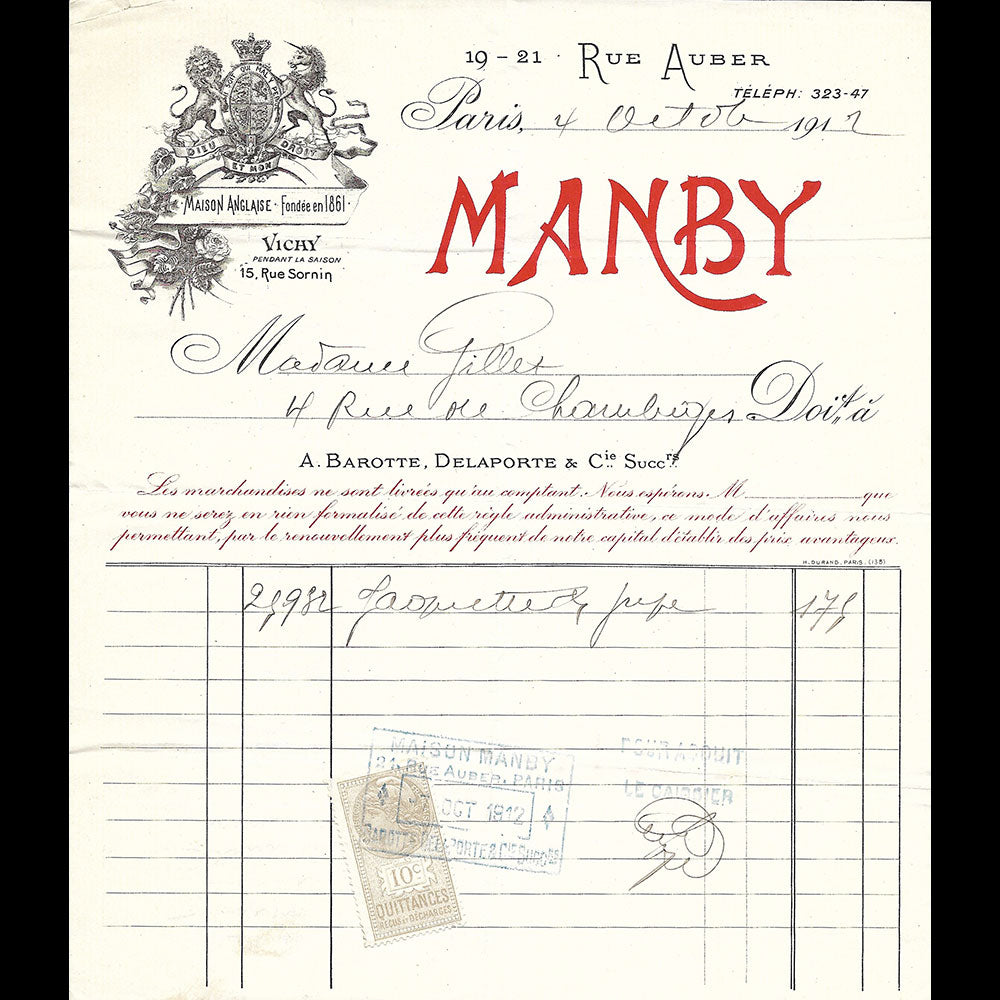 19 – 21 · RUE AUBER
TÉLÉPH: 323-47
Paris, 4 Octob 1912
HONI SOIT QUI MAL Y PENSE
DIEU ET MON DROIT
MAISON ANGLAISE · Fondée en 1861 ·
VICHY
PENDANT LA SAISON
15, Rue Sornin
MANBY
Madame Gillet
4 Rue de Chambiges Doit à
A. BAROTTE, DELAPORTE & Cie SUCCrs
Les marchandises ne sont livrées qu'au comptant. Nous espérons. M que
vous ne serez en rien formalisé de cette règle administrative, ce mode d'affaires nous
permettant, par le renouvellement plus fréquent de notre capital d'établir des prix avantageux.
H. DURAND, PARIS. (138)
25932 Jaquette & jupe 175
MAISON MANBY
21 RUE AUBER, PARIS
OCT 1912
BAROTTE DELAPORTE & Cie SUCCrs
POUR ACQUIT
LE CAISSIER
10c
QUITTANCES
REÇUS ET DÉCHARGES